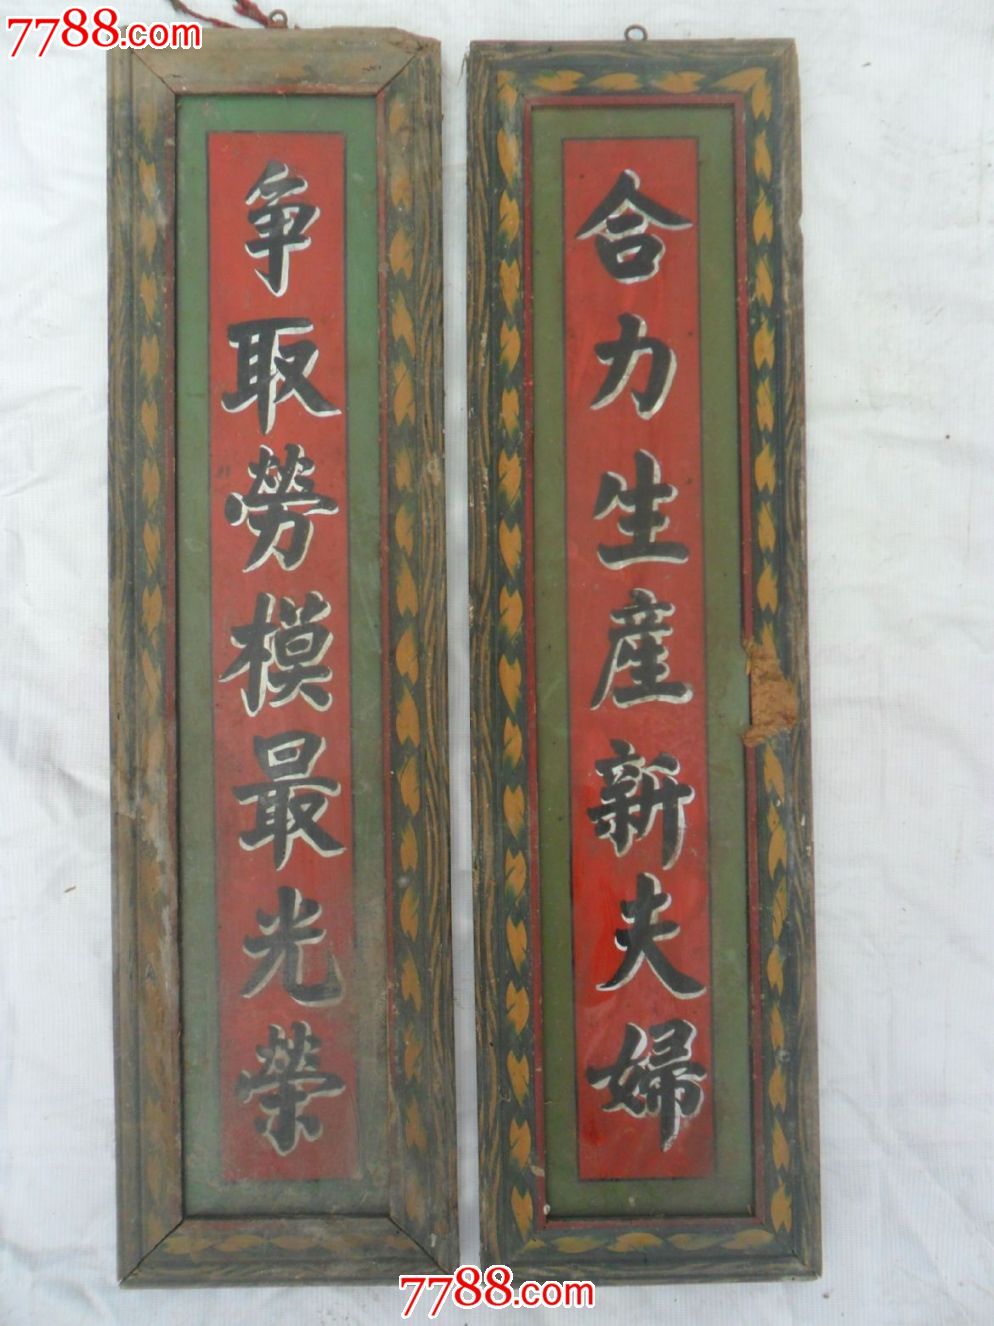 7788.com
7788.com
合力生産新夫婦
争取勞模最光榮
7788.com